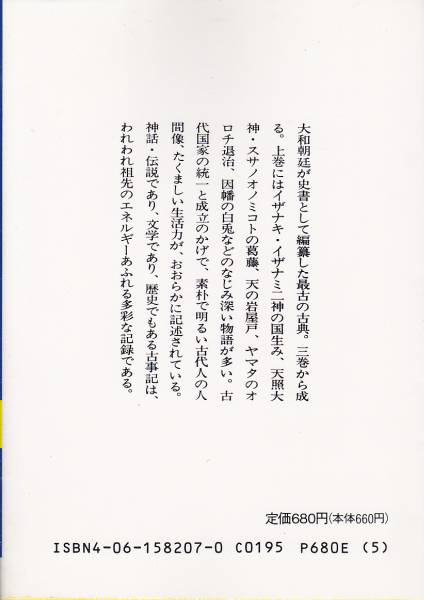 大和朝廷が史書として編纂した最古の古典。三巻から成
る。上巻にはイザナキ・イザナミ二神の国生み、天照大
神・スサノオノミコトの葛藤、天の岩屋戸、ヤマタのオ
ロチ退治、因幡の白兎などのなじみ深い物語が多い。古
代国家の統一と成立のかげで、素朴で明るい古代人の人
間像、たくましい生活力が、おおらかに記述されている。
神話・伝説であり、文学であり、歴史でもある古事記は、
われわれ祖先のエネルギーあふれる多彩な記録である。
定価680円(本体660円)
ISBN4-06-158207-0 C0195 P680E (5)